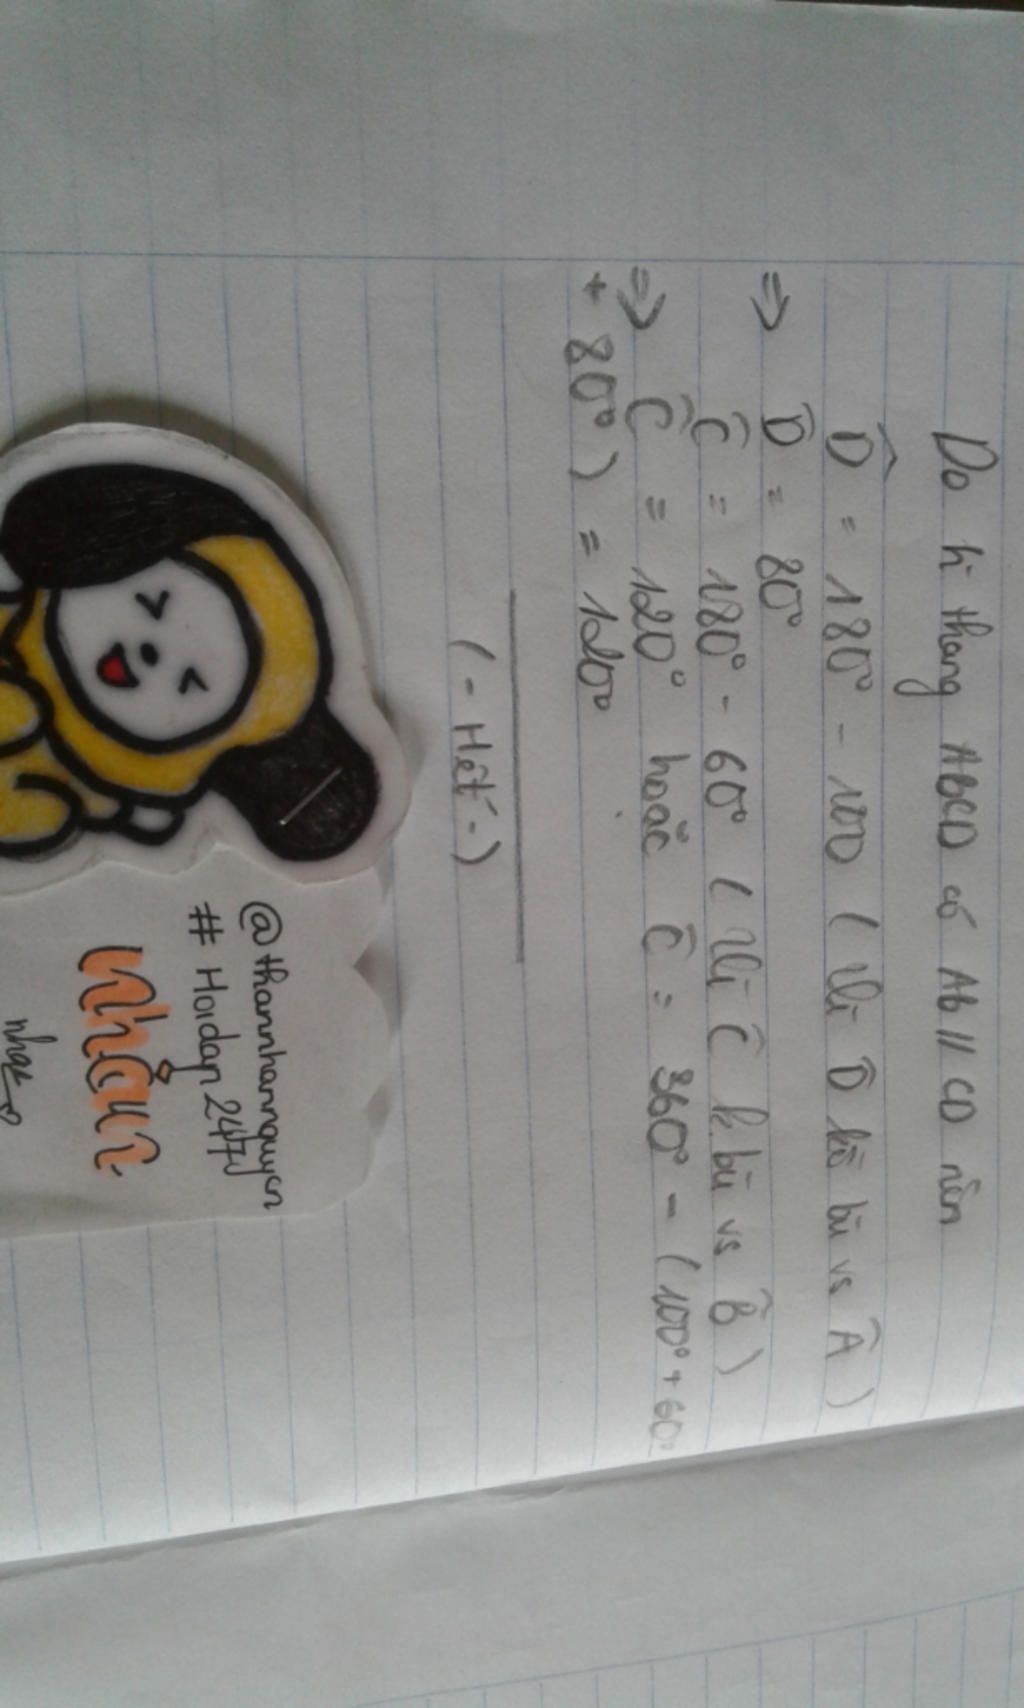 Do h thang ABCD có Ab // CD nên
D̂ = 180° - 100 ( Vì D̂ kề bù vs Â )
=> D̂ = 80°
Ĉ = 180° - 60° ( Vì Ĉ k.bù vs B̂ )
=> Ĉ = 120° hoặc Ĉ = 360° - ( 100° + 60°
+ 80° ) = 120°
( - Hết - )
@thannhannguyen
# Hoidap247
nhạt